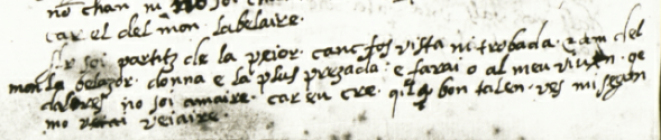 no chan ni no soi
car el del mon labelaire.
Ar soi partitz de la peior. canc fos vista ni trobada. Eam del
mon la belazor. donna e la plus prezada. e farai o al meu viven. qe
dalores no soi amaire. car eu cre. qil a bon talen. ves mi segon
mo veiaire.